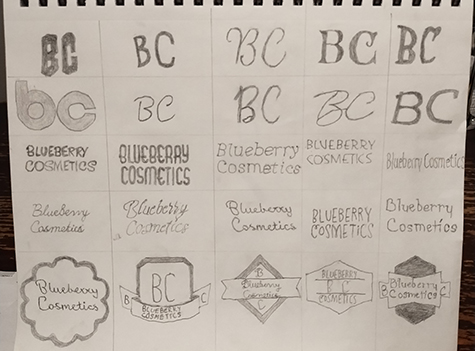 BC BC BC BC BC
bc BC BC BC BC
BLUEBERRY
COSMETICS
BLUEBERRY
COSMETICS
Blueberry
Cosmetics
BLUEBERRY
COSMETICS
Blueberry Cosmetics
Blueberry
Cosmetics
Blueberry
Cosmetics
Blueberry
Cosmetics
BLUEBERRY
COSMETICS
Blueberry
Cosmetics
Blueberry
Cosmetics
BC
B BLUEBERRY C
COSMETICS
B
Blueberry
Cosmetics
C
BLUEBERRY
BC
COSMETICS
B Blueberry C
Cosmetics